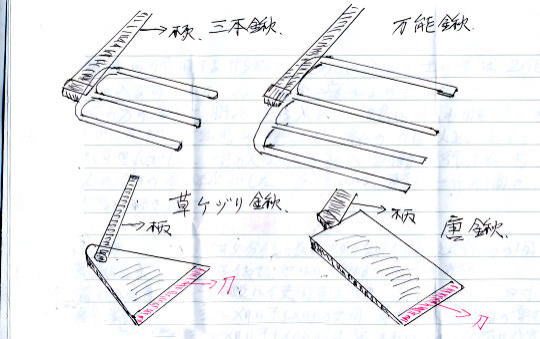 柄 三本鍬
万能鍬
草ケヅリ鍬
柄
刀
柄
唐鍬
刀